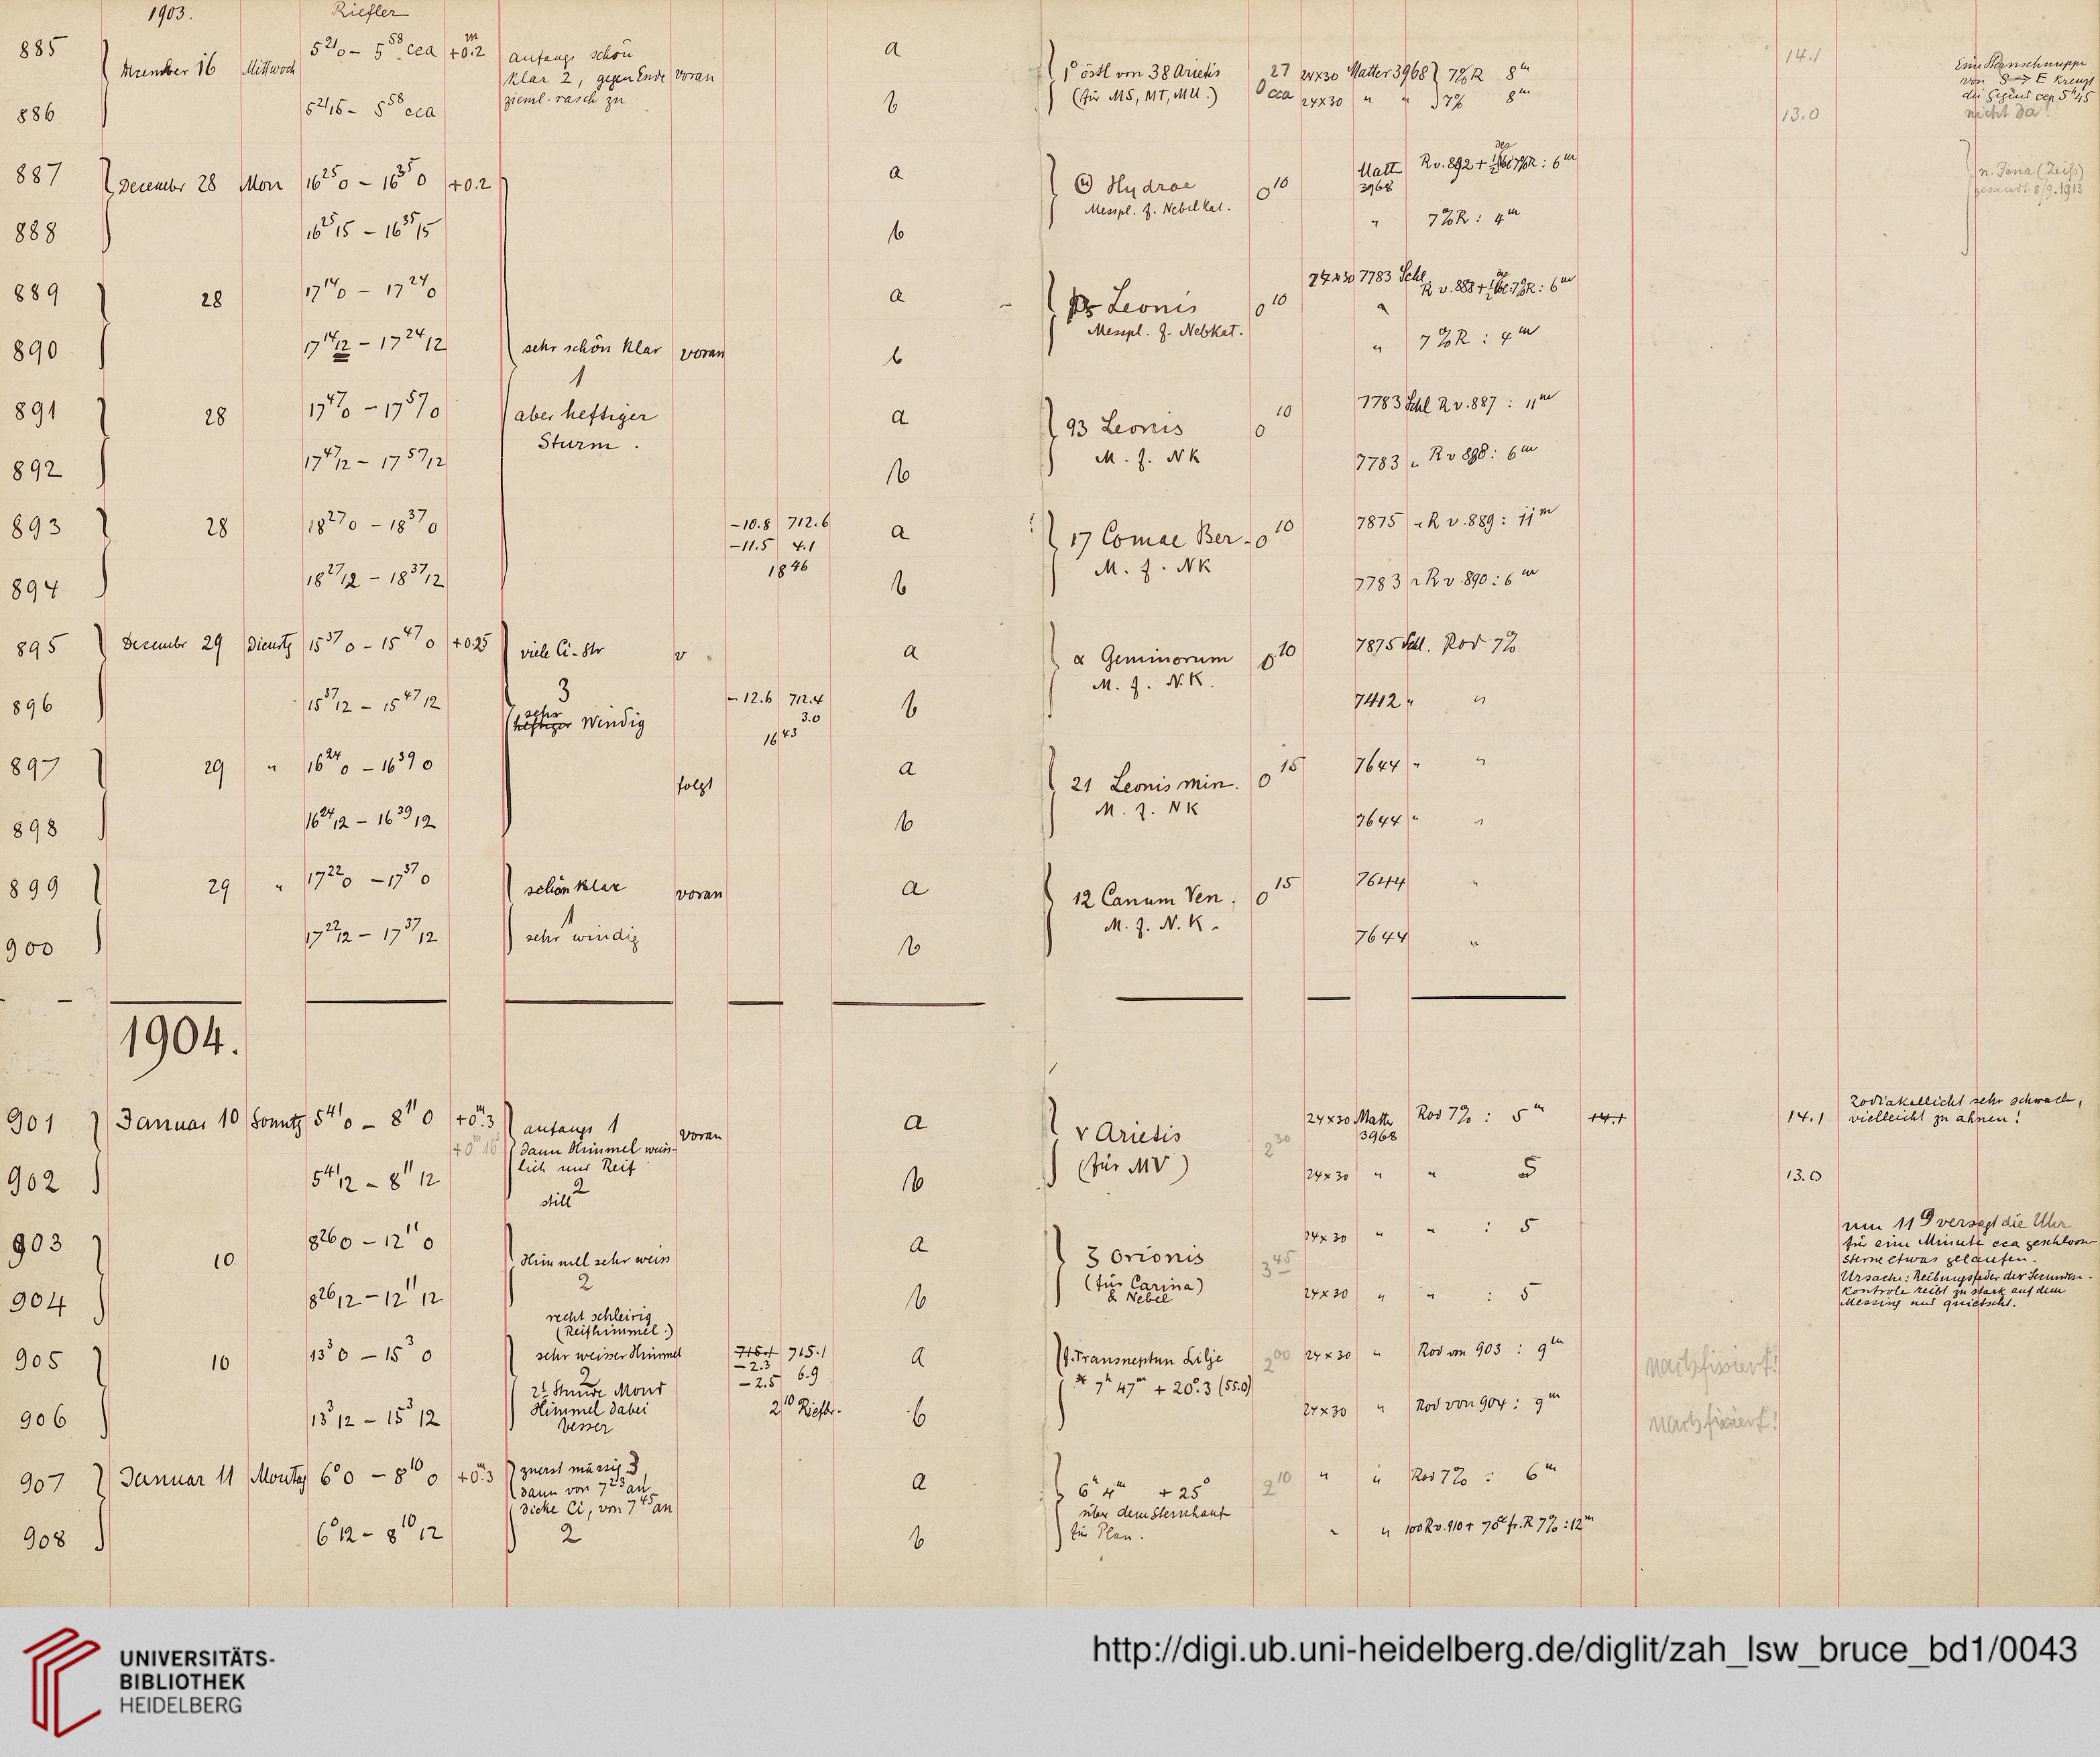 1903. Riefler
885 December 16 Mittwoch 5 21 0 – 5 58 cca +0.2 m anfangs schön a 1° östl von 38 Arietis 0 27 cca 24x30 Matter 3968 7% R 8 m 14.1 Eine Sternschnuppe
klar 2, gegen Ende voran von S → E kreuzt
886 5 21 15 – 5 58 cca zieml. rasch zu b (für MS, MT, MU.) 24x30 " " 7% 8 m 13.0 die Gegend 5 h 45
nicht da!
887 December 28 Mon 16 25 0 – 16 35 0 +0.2 a Hydrae 0 10 Matt 3968 R v. 892 + 7% R : 6 m n. Jena (Zeiss)
Messpl. f. Nebelkat. gesandt 8/9. 1913
888 16 25 15 – 16 35 15 b " 7% R : 4 m
889 28 17 14 0 – 17 24 0 a Leonis 0 10 24x30 7783 Schl R v. 888 + 7% R : 6 m
Messpl. f. Nebkat.
890 17 14 12 – 17 24 12 sehr schön klar voran b " 7% R : 4 m
1
891 28 17 47 0 – 17 57 0 aber heftiger a 93 Leonis 0 10 7783 Schl R v. 887 : 11 m
Sturm. M. f. NK
892 17 47 12 – 17 57 12 b 7783 " R v 898 : 6 m
893 28 18 27 0 – 18 37 0 –10.8 712.6 a 17 Comae Ber. 0 10 7875 " R v. 889 : 11 m
–11.5 4.1 M. f. NK
18 46
894 18 27 12 – 18 37 12 b 7783 " R v. 890 : 6 m
895 Dezembr 29 Dienstg 15 37 0 – 15 47 0 +0.25 viele Ci-Str v " a α Geminorum 0 10 7875 Schl. Rod 7%
3 M. f. N.K.
896 15 37 12 – 15 47 12 heftiger sehr windig –12.6 712.4 b 7412 " "
3.0
16 43
897 29 " 16 24 0 – 16 39 0 folgt a 21 Leonis min. 0 15 7644 " "
M. f. NK
898 16 24 12 – 16 39 12 b 7644 " "
899 29 " 17 22 0 – 17 37 0 schön klar voran a 12 Canum Ven. 0 15 7644 "
1 M. f. N.K.
900 17 22 12 – 17 37 12 sehr windig b 7644 "
1904.
901 Januar 10 Sonntg 5 41 0 – 8 11 0 +0 m.3 anfangs 1 voran a ν Arietis 2 30 24x30 Matter 3968 Rod 7% : 5 m 14.1 14.1 Zodiakallicht sehr schwach,
vielleicht zu ahnen!
+0 m 16 dann Himmel weiss-
lich und Reif (für MV)
902 5 41 12 – 8 11 12 still 2 b 24x30 " " 5 13.0
903 10 8 26 0 – 12 11 0 Himmel sehr weiss a ζ Orionis 3 45 24x30 " " : 5 um 11 9 versagt die Uhr
2 (für Carina) für eine Minute cca geschlossn
& Nebel Sterne etwas gelaufen.
904 8 26 12 – 12 11 12 b 24x30 " " : 5 Ursache: Reibungsfeder der Secunden-
recht schleirig kontrole reibt zu stark auf dem
(Reifhimmel.) Messing und quietscht.
905 10 13 3 0 – 15 3 0 sehr weisser Himmel 715.1 715.1 a f. Transneptun Lilje 2 00 24x30 " Rod von 903 : 9 m nachfixiert!
2 –2.3
2te Stunde Mond –2.5 6.9 * 7 h 47 m + 20°.3 (55.0)
Himmel dabei 2 10 Riefler.
906 13 3 12 – 15 3 12 besser b 24x30 " Rod von 904 : 9 m nachfixiert!
907 Januar 11 Montag 6 0 0 – 8 10 0 +0 m.3 zuerst mässig 3 a 6 h 4 m + 25° 2 10 " " Rod 7% : 6 m
dann von 7 23 an
dicke Ci, von 7 45 an über dem Sternhauf
908 6 0 12 – 8 10 12 2 b für Plan. " " 100 R v. 910 + fr. R 7% : 12 m
UNIVERSITÄTS-
BIBLIOTHEK
HEIDELBERG
http://digi.ub.uni-heidelberg.de/diglit/zah_lsw_bruce_bd1/0043